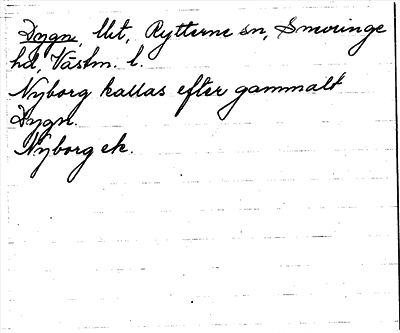 Dygn, llit, Rytterne sn, Snevringe
hd, Västm. l.
Nyborg kallas efter gammalt
Dygn.
Nyborg ek.